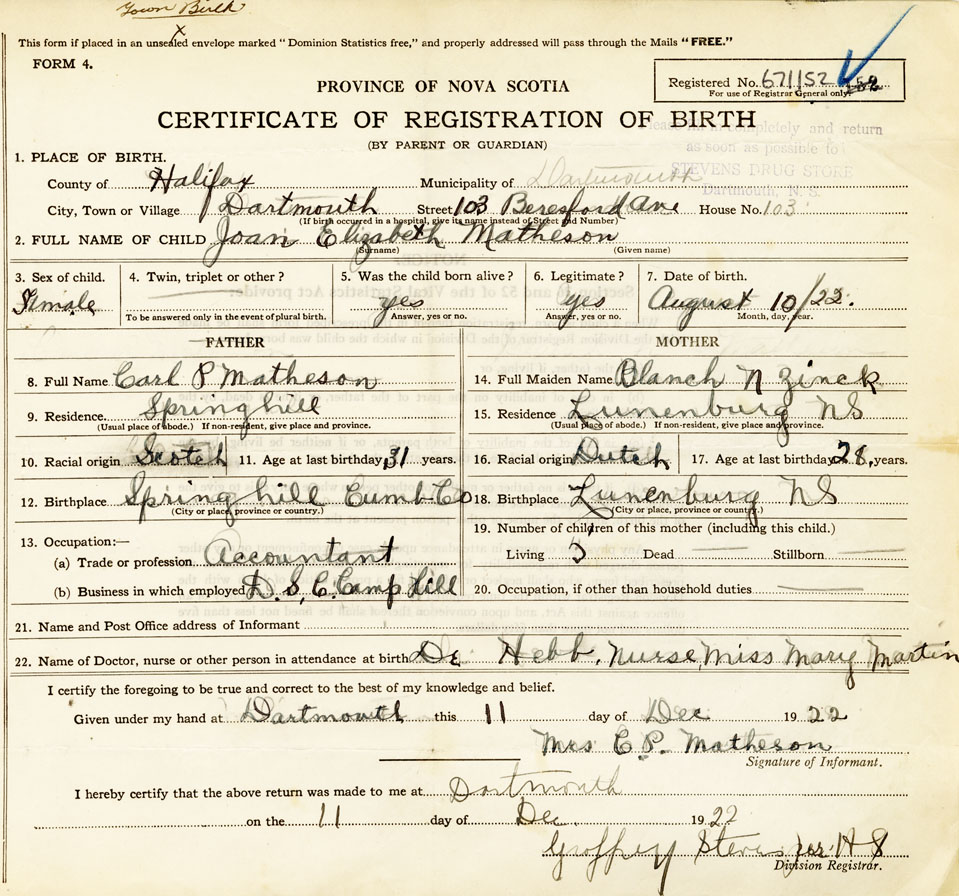 Town Birth
x
This form if placed in an unsealed envelope marked "Dominion Statistics free," and properly addressed will pass through the Mails "FREE."
FORM 4.
Registered No. 671152
For use of Registrar General only.
PROVINCE OF NOVA SCOTIA
CERTIFICATE OF REGISTRATION OF BIRTH
(BY PARENT OR GUARDIAN)
Please fill in completely and return
as soon as possible to
STEVENS DRUG STORE
Dartmouth, N. S.
1. PLACE OF BIRTH.
County of Halifax Municipality of Dartmouth
City, Town or Village Dartmouth Street 103 Beresford Ave House No. 103
(If birth occurred in a hospital, give its name instead of Street and Number)
2. FULL NAME OF CHILD Joan Elizabeth Matheson
(Surname) (Given name)
3. Sex of child. 4. Twin, triplet or other? 5. Was the child born alive? 6. Legitimate? 7. Date of birth.
Female yes yes August 10/22.
To be answered only in the event of plural birth. Answer, yes or no. Answer, yes or no. Month, day, year.
FATHER MOTHER
8. Full Name Carl P Matheson 14. Full Maiden Name Blanch N Zinck
9. Residence Springhill 15. Residence Lunenburg NS
(Usual place of abode.) If non-resident, give place and province. (Usual place of abode.) If non-resident, give place and province.
10. Racial origin Scotch 11. Age at last birthday 31 years. 16. Racial origin Dutch 17. Age at last birthday 28 years.
12. Birthplace Springhill Cumb Co 18. Birthplace Lunenburg NS
(City or place, province or country.) (City or place, province or country.)
13. Occupation:— 19. Number of children of this mother (including this child.)
(a) Trade or profession Accountant Living 5 Dead Stillborn
(b) Business in which employed D.S.C. Camp Hill 20. Occupation, if other than household duties
21. Name and Post Office address of Informant
22. Name of Doctor, nurse or other person in attendance at birth Dr Hebb, Nurse Miss Mary Martin
I certify the foregoing to be true and correct to the best of my knowledge and belief.
Given under my hand at Dartmouth this 11 day of Dec 1922
Mrs C P. Matheson
Signature of Informant.
I hereby certify that the above return was made to me at Dartmouth
on the 11 day of Dec. 1922
Geoffrey Stevens per H S
Division Registrar.